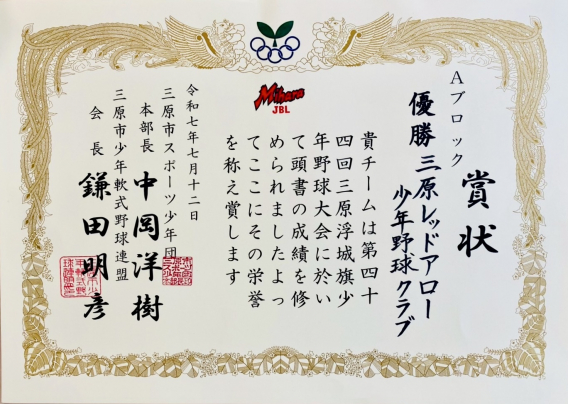 賞状
Aブロック
優勝 三原レッドアロー
少年野球クラブ
貴チームは第四十
四回三原浮城旗少
年野球大会に於い
て頭書の成績を修
められましたよっ
てここにその栄誉
を称え賞します
Mihara
JBL
令和七年七月十二日
三原市スポーツ少年団
本部長 中岡洋樹
三原市少年軟式野球連盟
会長 鎌田明彦